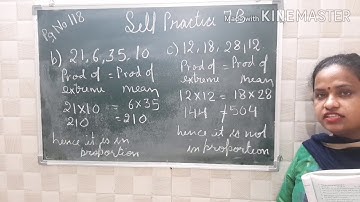 Pg No 118
Self Practice 7B
Made with KINEMASTER
b) 21, 6, 35, 10
Prod of = Prod of
extreme mean
21×10 = 6×35
210 = 210
hence it is in
proportion
c) 12, 18, 28, 12.
Prod of = Prod of
extreme mean
12×12 = 18×28
144 ≠ 504
hence it is not
in proportion